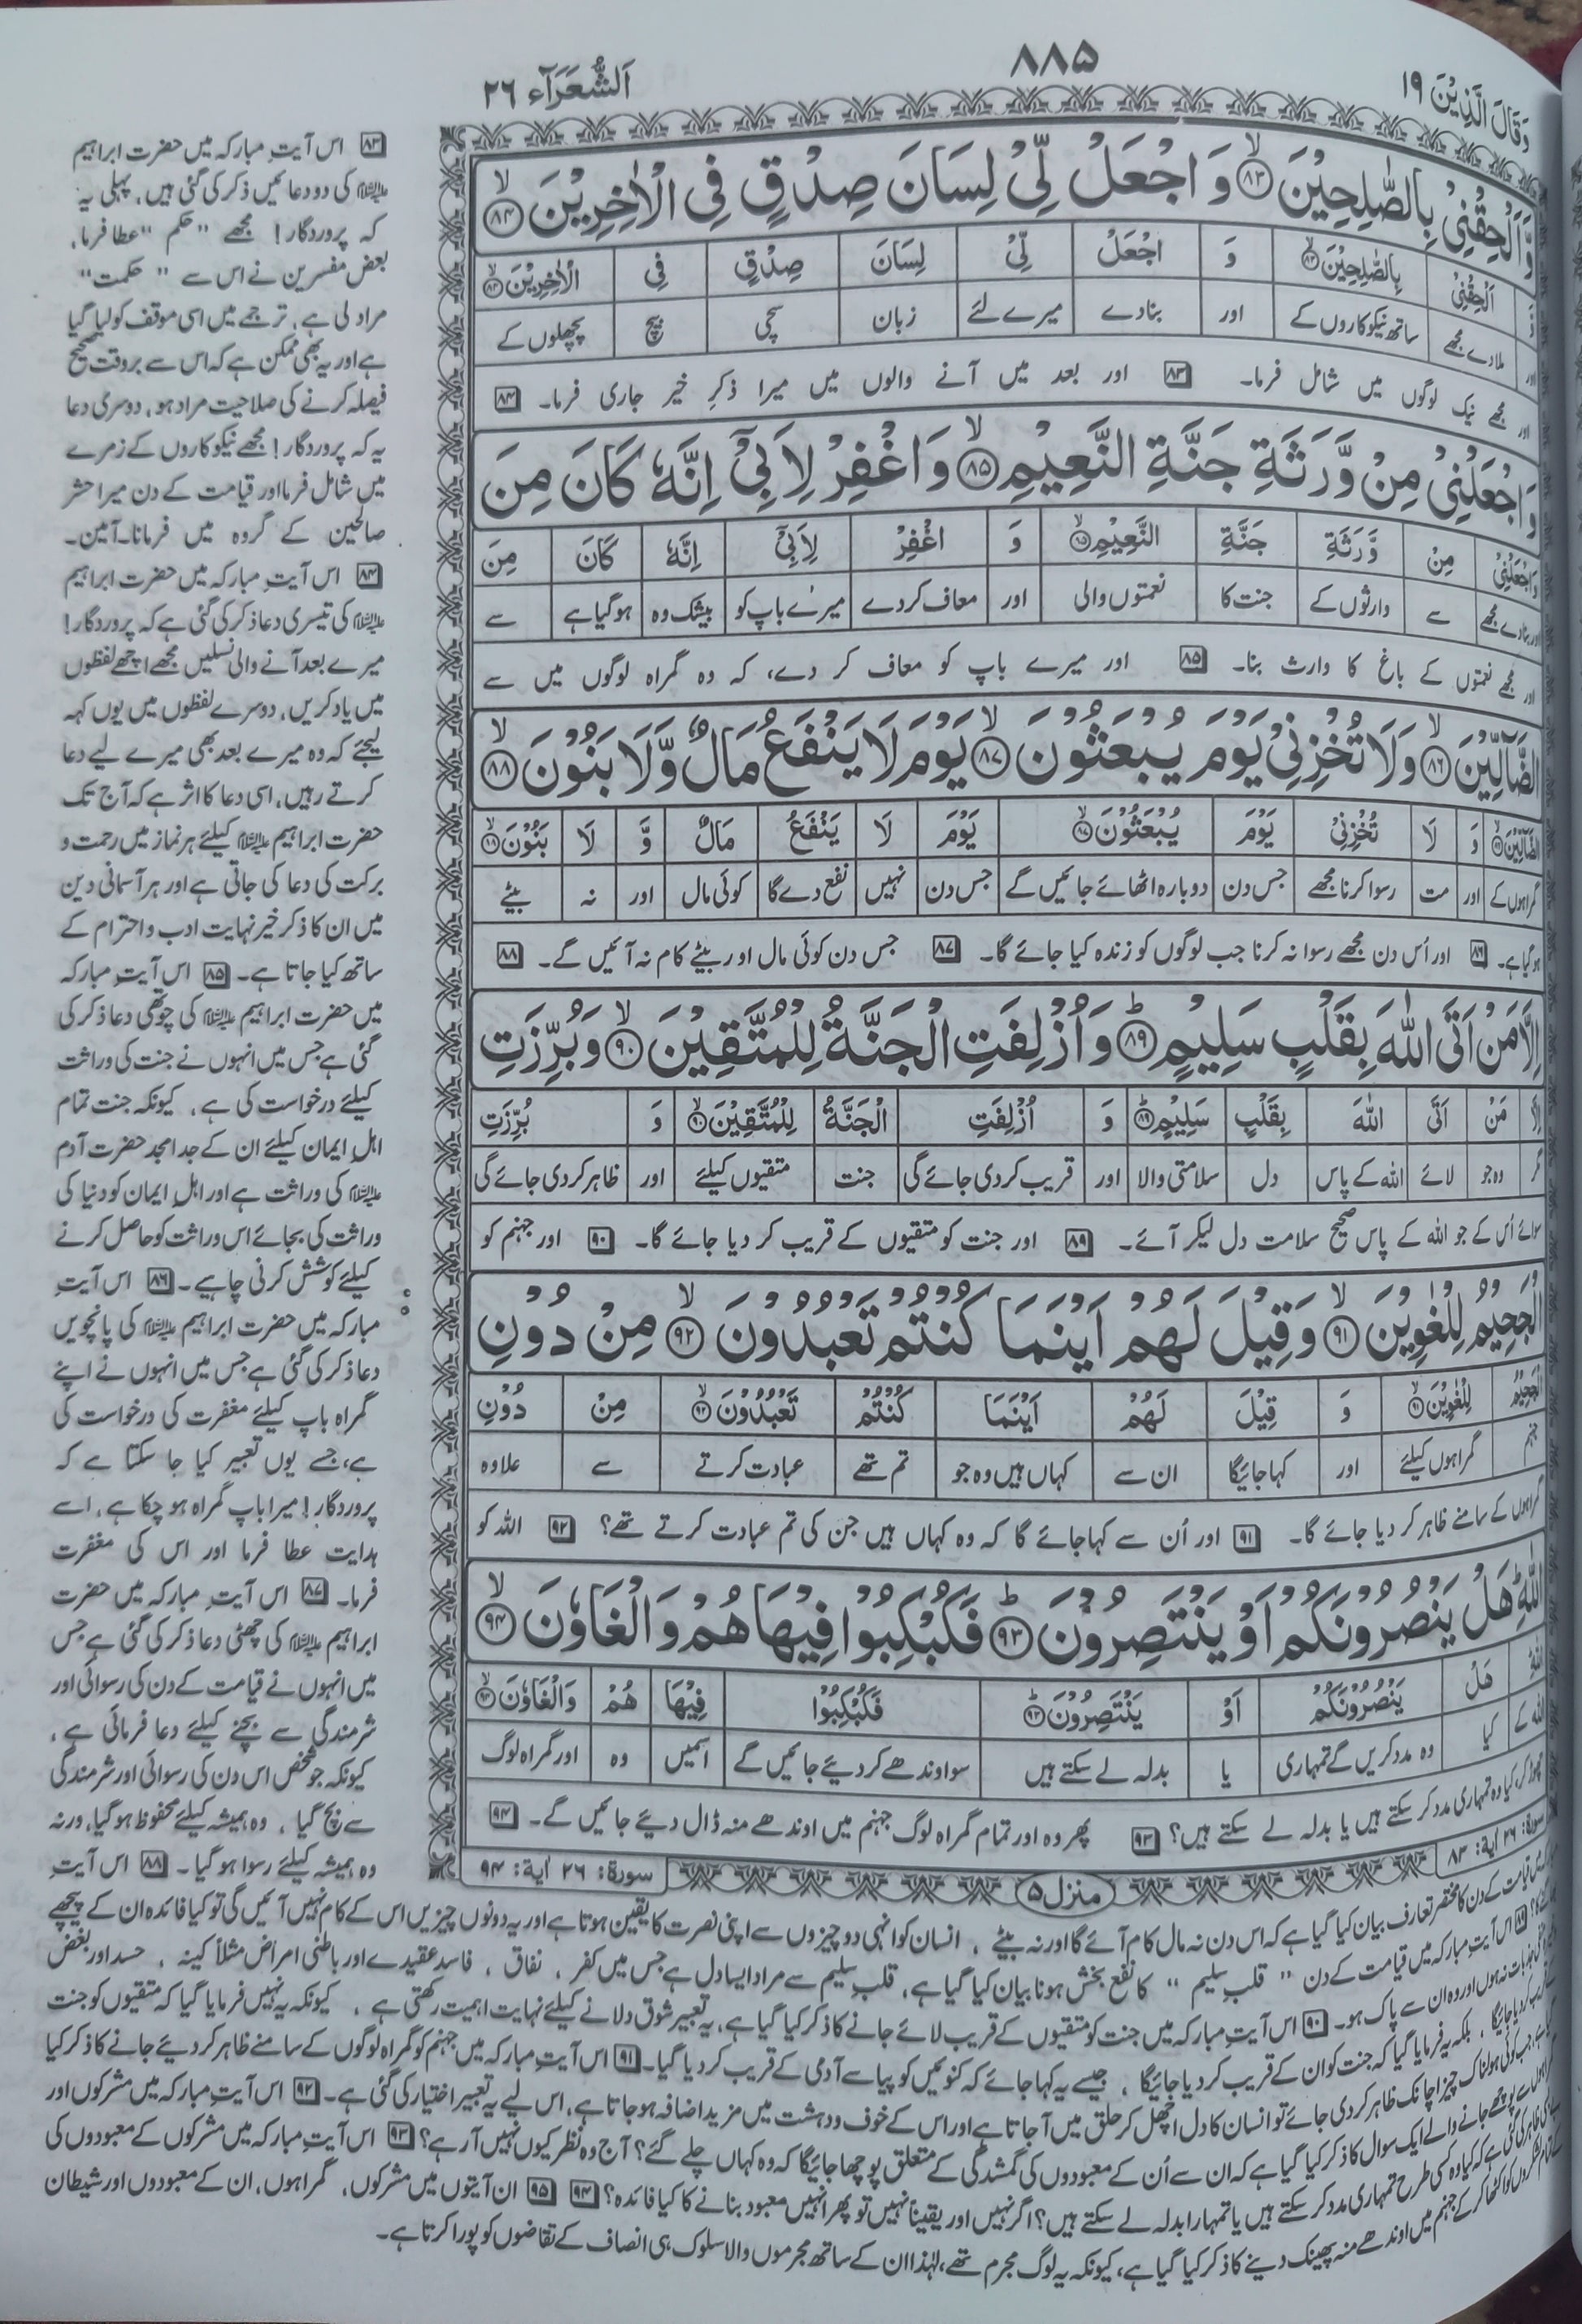 وَقَالَ الَّذِيْنَ ١٩
٨٨٥
اَلشُّعَرَآء ٢٦
وَّاَلْحِقْنِیْ بِالصّٰلِحِيْنَ ﴿٨٣﴾ وَ اجْعَلْ لِّیْ لِسَانَ صِدْقٍ فِی الْاٰخِرِيْنَ ﴿٨٤﴾
اَلْحِقْنِیْ بِالصّٰلِحِيْنَ ﴿٨٣﴾ وَ اجْعَلْ لِّیْ لِسَانَ صِدْقٍ فِی الْاٰخِرِيْنَ ﴿٨٤﴾
ملادے مجھے ساتھ نیکوکاروں کے اور بنادے میرے لئے زبان سچی بیچ پچھلوں کے
اور مجھے نیک لوگوں میں شامل فرما۔ ٨٣ اور بعد میں آنے والوں میں میرا ذکرِ خیر جاری فرما۔ ٨٤
وَاجْعَلْنِیْ مِنْ وَّرَثَةِ جَنَّةِ النَّعِيْمِ ﴿٨٥﴾ وَاغْفِرْ لِاَبِیْۤ اِنَّهٗ كَانَ مِنَ
وَاجْعَلْنِیْ مِنْ وَّرَثَةِ جَنَّةِ النَّعِيْمِ ﴿٨٥﴾ وَ اغْفِرْ لِاَبِیْۤ اِنَّهٗ كَانَ مِنَ
اور بنادے مجھے سے وارثوں کے جنت کا نعمتوں والی اور معاف کردے میرے باپ کو بیشک وہ ہوگیا ہے سے
اور مجھے نعمتوں کے باغ کا وارث بنا۔ ٨٥ اور میرے باپ کو معاف کر دے، کہ وہ گمراہ لوگوں میں سے
الضَّآلِّيْنَ ﴿٨٦﴾ وَلَا تُخْزِنِیْ يَوْمَ يُبْعَثُوْنَ ﴿٨٧﴾ يَوْمَ لَا يَنْفَعُ مَالٌ وَّلَا بَنُوْنَ ﴿٨٨﴾
الضَّآلِّيْنَ ﴿٨٦﴾ وَ لَا تُخْزِنِیْ يَوْمَ يُبْعَثُوْنَ ﴿٨٧﴾ يَوْمَ لَا يَنْفَعُ مَالٌ وَّ لَا بَنُوْنَ ﴿٨٨﴾
گمراہوں کے اور مت رسوا کرنا مجھے جس دن دوبارہ اٹھائے جائیں گے جس دن نہیں نفع دے گا کوئی مال اور نہ بیٹے
ہوگیا ہے۔ ٨٦ اور اُس دن مجھے رسوا نہ کرنا جب لوگوں کو زندہ کیا جائے گا۔ ٨٧ جس دن کوئی مال اور بیٹے کام نہ آئیں گے۔ ٨٨
اِلَّا مَنْ اَتَی اللّٰهَ بِقَلْبٍ سَلِيْمٍ ﴿٨٩﴾ وَاُزْلِفَتِ الْجَنَّةُ لِلْمُتَّقِيْنَ ﴿٩٠﴾ وَبُرِّزَتِ
مَنْ اَتَی اللّٰهَ بِقَلْبٍ سَلِيْمٍ ﴿٨٩﴾ وَ اُزْلِفَتِ الْجَنَّةُ لِلْمُتَّقِيْنَ ﴿٩٠﴾ وَ بُرِّزَتِ
وہ جو لائے اللہ کے پاس دل سلامتی والا اور قریب کردی جائے گی جنت متقیوں کیلئے اور ظاہر کردی جائے گی
سوائے اُس کے جو اللہ کے پاس صحیح سلامت دل لیکر آئے۔ ٨٩ اور جنت کو متقیوں کے قریب کر دیا جائے گا۔ ٩٠ اور جہنم کو
الْجَحِيْمُ لِلْغٰوِيْنَ ﴿٩١﴾ وَقِيْلَ لَهُمْ اَيْنَمَا كُنْتُمْ تَعْبُدُوْنَ ﴿٩٢﴾ مِنْ دُوْنِ
الْجَحِيْمُ لِلْغٰوِيْنَ ﴿٩١﴾ وَ قِيْلَ لَهُمْ اَيْنَمَا كُنْتُمْ تَعْبُدُوْنَ ﴿٩٢﴾ مِنْ دُوْنِ
جہنم گمراہوں کیلئے اور کہا جائیگا ان سے کہاں ہیں وہ جو تم تھے عبادت کرتے سے علاوہ
گمراہوں کے سامنے ظاہر کر دیا جائے گا۔ ٩١ اور اُن سے کہا جائے گا کہ وہ کہاں ہیں جن کی تم عبادت کرتے تھے؟ ٩٢ اللہ کو
اللّٰهِ هَلْ يَنْصُرُوْنَكُمْ اَوْ يَنْتَصِرُوْنَ ﴿٩٣﴾ فَكُبْكِبُوْا فِيْهَا هُمْ وَالْغَاوٗنَ ﴿٩٤﴾
اللّٰهِ هَلْ يَنْصُرُوْنَكُمْ اَوْ يَنْتَصِرُوْنَ ﴿٩٣﴾ فَكُبْكِبُوْا فِيْهَا هُمْ وَالْغَاوٗنَ ﴿٩٤﴾
اللہ کے کیا وہ مدد کریں گے تمہاری یا بدلہ لے سکتے ہیں سو اوندھے کردیئے جائیں گے اسمیں وہ اور گمراہ لوگ
چھوڑ کر، کیا وہ تمہاری مدد کر سکتے ہیں یا بدلہ لے سکتے ہیں؟ ٩٣ پھر وہ اور تمام گمراہ لوگ جہنم میں اوندھے منہ ڈال دیئے جائیں گے۔ ٩٤
سورة: ٢٦ اٰیة: ٨٣
منزل ٥
سورة: ٢٦ اٰیة: ٩٤
٨٣ اس آیتِ مبارکہ میں حضرت ابراہیم
علیہ السلام کی دو دعائیں ذکر کی گئی ہیں، پہلی یہ
کہ پروردگار! مجھے "حکم" عطا فرما،
بعض مفسرین نے اس سے "حکمت"
مراد لی ہے، ترجمے میں اسی موقف کو لیا گیا
ہے اور یہ بھی ممکن ہے کہ اس سے بروقت صحیح
فیصلہ کرنے کی صلاحیت مراد ہو، دوسری دعا
یہ کہ پروردگار! مجھے نیکوکاروں کے زمرے
میں شامل فرما اور قیامت کے دن میرا حشر
صالحین کے گروہ میں فرمانا۔ آمین۔
٨٤ اس آیتِ مبارکہ میں حضرت ابراہیم
علیہ السلام کی تیسری دعا ذکر کی گئی ہے کہ پروردگار!
میرے بعد آنے والی نسلیں مجھے اچھے لفظوں
میں یاد کریں، دوسرے لفظوں میں یوں کہہ
لیجئے کہ وہ میرے بعد بھی میرے لیے دعا
کرتے رہیں، اسی دعا کا اثر ہے کہ آج تک
حضرت ابراہیم علیہ السلام کیلئے ہر نماز میں رحمت و
برکت کی دعا کی جاتی ہے اور ہر آسمانی دین
میں ان کا ذکر خیر نہایت ادب و احترام کے
ساتھ کیا جاتا ہے۔ ٨٥ اس آیتِ مبارکہ
میں حضرت ابراہیم علیہ السلام کی چوتھی دعا ذکر کی
گئی ہے جس میں انہوں نے جنت کی وراثت
کیلئے درخواست کی ہے، کیونکہ جنت تمام
اہلِ ایمان کیلئے ان کے جد امجد حضرت آدم
علیہ السلام کی وراثت ہے اور اہلِ ایمان کو دنیا کی
وراثت کی بجائے اس وراثت کو حاصل کرنے
کیلئے کوشش کرنی چاہیے۔ ٨٦ اس آیتِ
مبارکہ میں حضرت ابراہیم علیہ السلام کی پانچویں
دعا ذکر کی گئی ہے جس میں انہوں نے اپنے
گمراہ باپ کیلئے مغفرت کی درخواست کی
ہے، جسے یوں تعبیر کیا جا سکتا ہے کہ
پروردگار! میرا باپ گمراہ ہو چکا ہے، اسے
ہدایت عطا فرما اور اس کی مغفرت
فرما۔ ٨٧ اس آیتِ مبارکہ میں حضرت
ابراہیم علیہ السلام کی چھٹی دعا ذکر کی گئی ہے جس
میں انہوں نے قیامت کے دن کی رسوائی اور
شرمندگی سے بچنے کیلئے دعا فرمائی ہے،
کیونکہ جو شخص اس دن کی رسوائی اور شرمندگی
سے بچ گیا، وہ ہمیشہ کیلئے محفوظ ہو گیا، ورنہ
وہ ہمیشہ کیلئے رسوا ہو گیا۔ ٨٨ اس آیتِ
قیامت کے دن کا مختصر تعارف بیان کیا گیا ہے کہ اس دن نہ مال کام آئے گا اور نہ بیٹے، انسان کو انہی دو چیزوں سے اپنی نصرت کا یقین ہوتا ہے اور یہ دونوں چیزیں اس کے کام نہیں آئیں گی تو کیا فائدہ ان کے پیچھے
٨٩ اس آیتِ مبارکہ میں قیامت کے دن "قلب سلیم" کا نفع بخش ہونا بیان کیا گیا ہے، قلب سلیم سے مراد ایسا دل ہے جس میں کفر، نفاق، فاسد عقیدے اور باطنی امراض مثلاً کینہ، حسد اور بغض
نہ ہوں اور وہ ان سے پاک ہو۔ ٩٠ اس آیتِ مبارکہ میں جنت کو متقیوں کے قریب لائے جانے کا ذکر کیا گیا ہے، یہ تعبیر شوق دلانے کیلئے نہایت اہمیت رکھتی ہے، کیونکہ یہ نہیں فرمایا گیا کہ متقیوں کو جنت
بلکہ یہ فرمایا گیا کہ جنت کو ان کے قریب کر دیا جائیگا، جیسے یہ کہا جائے کہ کنوئیں کو پیاسے آدمی کے قریب کر دیا گیا۔ ٩١ اس آیتِ مبارکہ میں جہنم کو گمراہ لوگوں کے سامنے ظاہر کر دیئے جانے کا ذکر کیا
جب کوئی ہولناک چیز اچانک ظاہر کر دی جائے تو انسان کا دل اچھل کر حلق میں آ جاتا ہے اور اس کے خوف و دہشت میں مزید اضافہ ہو جاتا ہے، اس لیے یہ تعبیر اختیار کی گئی ہے۔ ٩٢ اس آیتِ مبارکہ میں مشرکوں اور
پوچھے جانے والے ایک سوال کا ذکر کیا گیا ہے کہ ان سے اُن کے معبودوں کی گمشدگی کے متعلق پوچھا جائیگا کہ وہ کہاں چلے گئے؟ آج وہ نظر کیوں نہیں آ رہے؟ ٩٣ اس آیتِ مبارکہ میں مشرکوں کے معبودوں کی
کہ کیا وہ کسی طرح تمہاری مدد کر سکتے ہیں یا تمہارا بدلہ لے سکتے ہیں؟ اگر نہیں اور یقیناً نہیں تو پھر انہیں معبود بنانے کا کیا فائدہ؟ ٩٤ ٩٥ ان آیتوں میں مشرکوں، گمراہوں، ان کے معبودوں اور شیطان
کو اکٹھا کر کے جہنم میں اوندھے منہ پھینک دینے کا ذکر کیا گیا ہے، کیونکہ یہ لوگ مجرم تھے، لہٰذا ان کے ساتھ مجرموں والا سلوک ہی انصاف کے تقاضوں کو پورا کرتا ہے۔